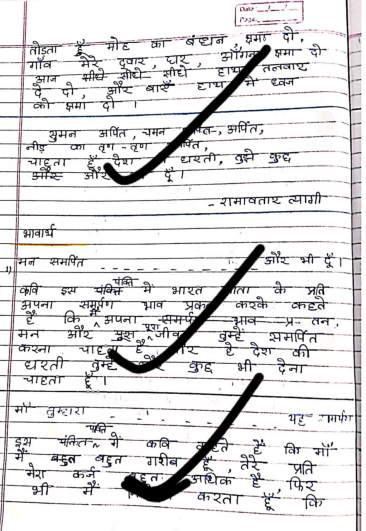 Date
Page
तोड़ता हूँ मोह का बंधन क्षमा दो,
गाँव मेरे, द्वार, घर, आँगन क्षमा दो
आज सीधे सीधे-सीधे हाथ तलवार
दे दो, और बाएँ हाथ में ध्वज
को क्षमा दो।
सुमन अर्पित, चमन अर्पित,
नीड़ का तृण-तृण
चाहता हूँ देश धरती, तुझे कुछ
और दूँ।
- रामावतार त्यागी
भावार्थ
1) मन समर्पित - - - - और भी दूँ।
पंक्ति
कवि इस में भारत माता के प्रति
अपना समर्पण भाव प्रकट करके कहते
हैं कि अपना भाव तन,
पूरा
मन और तुम्हें समर्पित
करना हूँ और हे देश की
धरती तुम्हें कुछ भी देना
चाहता हूँ।
माँ तुम्हारा - - - - यह
पंक्ति
इस में कवि कहते हैं कि माँ
मैं बहुत गरीब हूँ, तेरे प्रति
मेरा कर्ज बहुत अधिक है, फिर
भी मैं करता हूँ कि